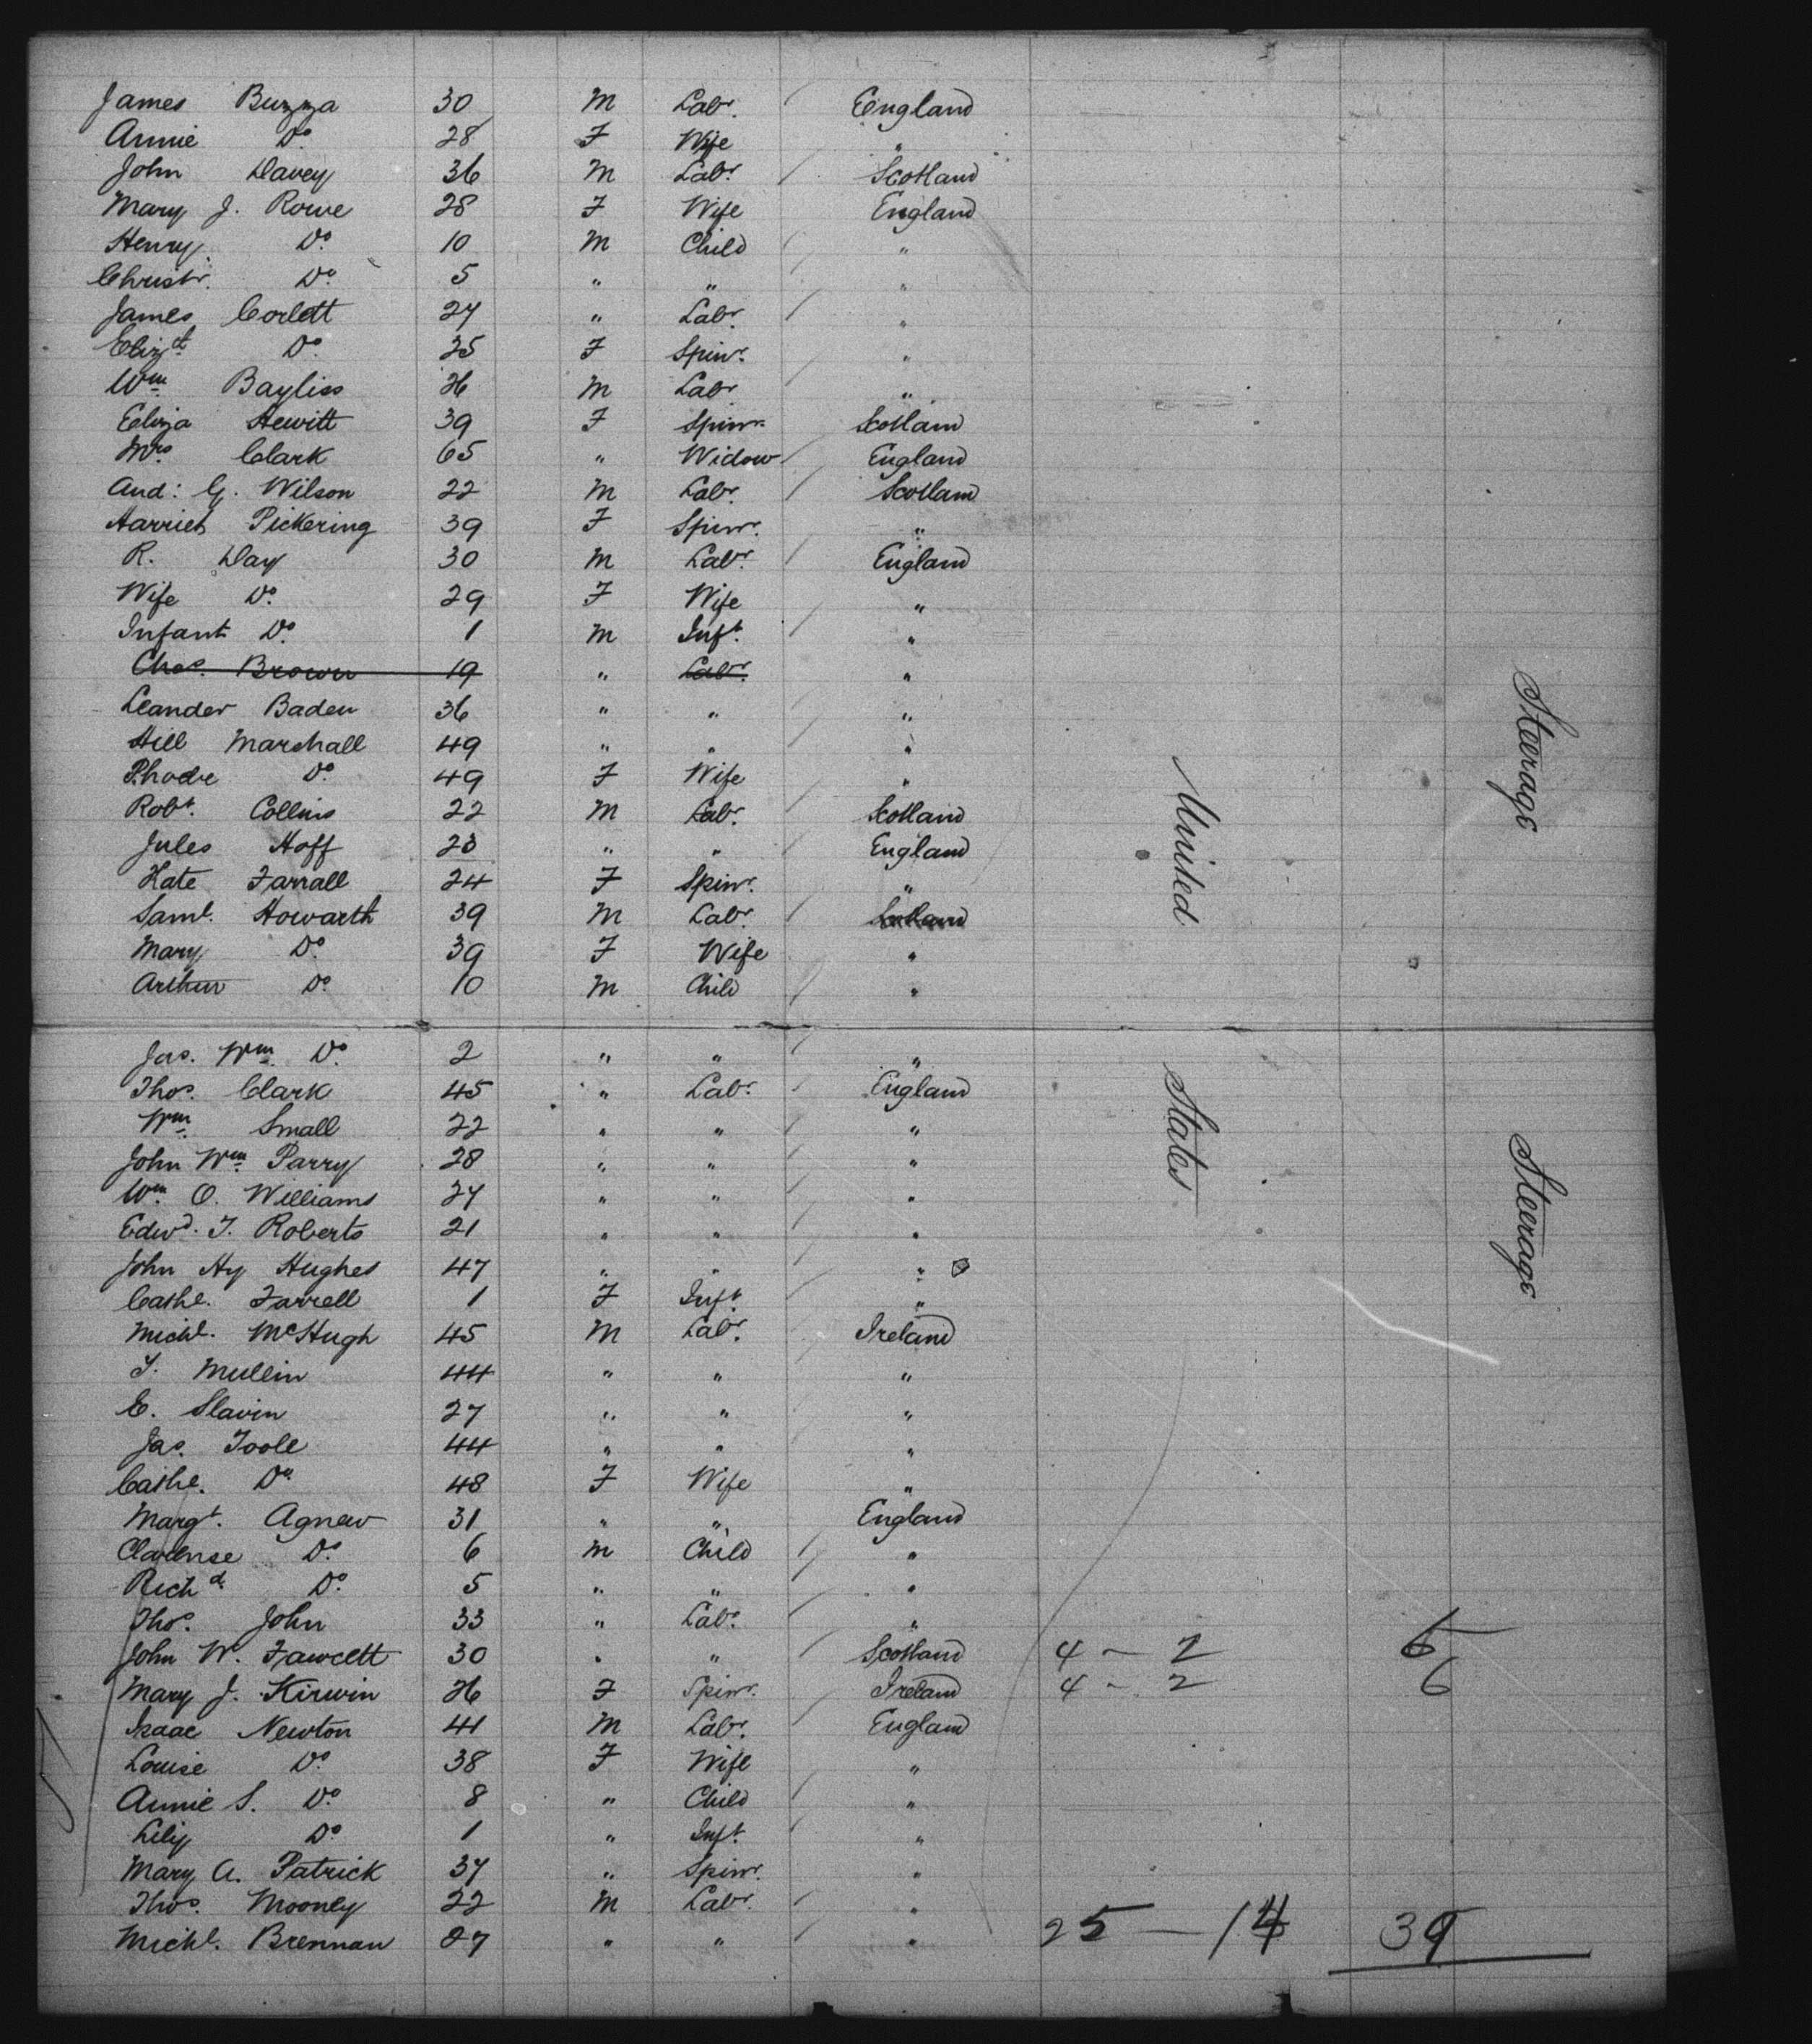 James Buzza 30 M Labr. England
Annie Do. 28 F Wife "
John Davey 36 M Labr. Scotland
Mary J. Rowe 28 F Wife England
Henry Do. 10 M Child "
Christr. Do. 5 " " "
James Corlett 24 " Labr. "
Elizth Do. 25 F Spinr. "
Wm Bayliss 26 M Labr. "
Eliza Hewitt 39 F Spinr. Scotland
Mrs Clark 65 " Widow England
And: G. Wilson 22 M Labr. Scotland
Harriet Pickering 39 F Spinr. "
R. Day 30 M Labr. England
Wife Do. 29 F Wife "
Infant Do. 1 M Inft. "
Chas. Brown 19 " Labr. "
Leander Baden 36 " " "
Hill Marshall 49 " " "
Phoebe Do. 49 F Wife "
Robt. Collins 22 M Labr. Scotland
Jules Hoff 23 " " England
Kate Farrall 24 F Spinr. "
Saml. Howarth 39 M Labr.
Mary Do. 39 F Wife "
Arthur Do. 10 M Child "
Jas. Wm. Do. 2 " " "
Thos. Clark 45 " Labr. England
Wm. Small 22 " " "
John Wm. Parry 28 " " "
Wm. O. Williams 24 " " "
Edwd. T. Roberts 21 " " "
John Hy Hughes 47 " " "
Cathe. Farrell 1 F Inft. "
Michl. McHugh 45 M Labr. Ireland
T. Mullin 44 " " "
E. Slavin 27 " " "
Jas. Toole 44 " " "
Cathe. Do. 48 F Wife "
Margt. Agnew 31 " " England
Clarense Do. 6 M Child "
Richd. Do. 5 " " "
Thos. John 33 " Labr. "
John W. Fawcett 30 " " Scotland 4 - 2 6
Mary J. Kirwin 26 F Spinr. Ireland 4 - 2 6
Isaac Newton 41 M Labr. England
Louise Do. 38 F Wife "
Annie S. Do. 8 " Child "
Lily Do. 1 " Inft. "
Mary A. Patrick 34 " Spinr. "
Thos. Mooney 22 M Labr. "
Michl. Brennan 27 " " " 25 - 14 39
United States
Steerage
Steerage